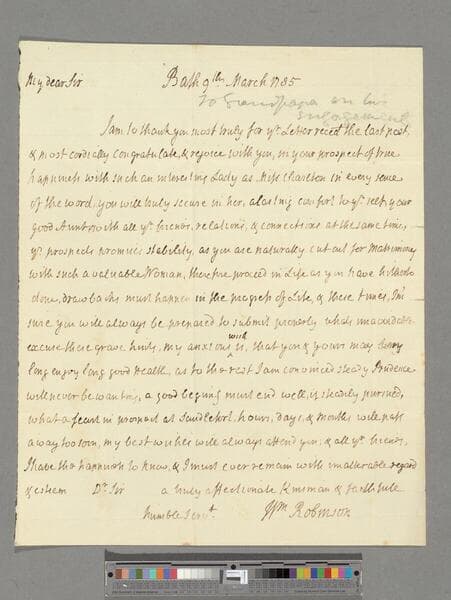 My dear Sir Bath 9th March 1785
To Grandpapa on his
engagement
I am to thank you most truly for yr Letter recd the last post,
& most cordially congratulate, & rejoice with you, in your prospect of true
happiness with such an interesting Lady as Miss in every sense
of the word, you will truly secure in her, a lasting comfort to yr self, your
good Aunt with all yr friends, relations, & connections at the same time,
yr prospects promise stability, as you are naturally cut out for Matrimony
with such a valuable Woman, therefore proceed in Life as you have hitherto
done, drawbacks must happen in the progress of Life, & these times, I'm
sure you will always be prepared to submit properly whats unavoidable
excuse these grave hints, my anxious wish is, that you & yours may
long enjoy long good health, as to the rest I am convinced steady Prudence
will never be wanting, a good begining must end well, if steadily pursued,
what a feast in prospect at hours, days, & months will pass
away too soon, my best wishes will always attend you, & all yr friends,
I have the happiness to know, & I must ever remain with unalterable regard
& esteem Dr Sir a truly affectionate Kinsman & faithfull
humble Servt. Wm Robinson